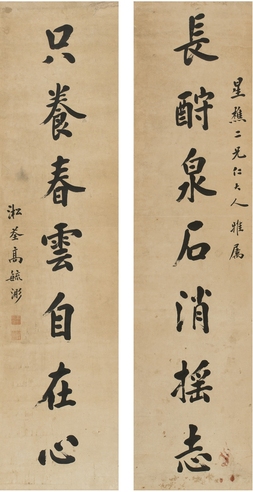 長酧泉石消摇志
星樵二兄仁大人雅属
只養春雲自在心
淞荃高毓浵